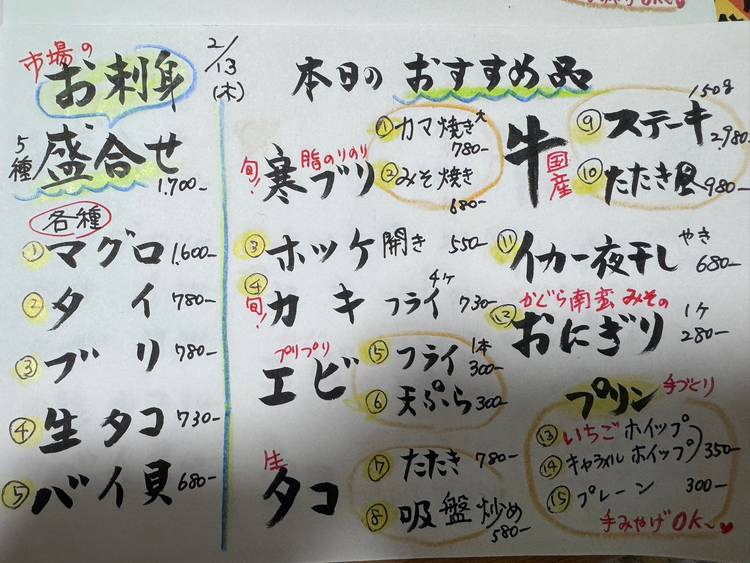 市場の
お刺身
2/13
(木)
5種
盛合せ
1,700-
各種
① マグロ 1,600-
② タイ 780-
③ ブリ 780-
④ 生タコ 730-
⑤ バイ貝 680-
本日の おすすめ品
旬! 寒ブリ 脂のりのり
① カマ焼き 大 780-
② みそ焼き 680-
③ ホッケ 開き 550-
④ 旬! カキ フライ 4ヶ 730-
プリプリ
エビ
⑤ フライ 1本 300-
⑥ 天ぷら 300-
生
タコ
⑦ たたき 780-
⑧ 吸盤炒め 580-
牛 国産
⑨ ステーキ 150g 2,980-
⑩ たたき風 980-
⑪ イカ一夜干し やき 680-
かぐら南蛮 みその
⑫ おにぎり 1ヶ 280-
プリン 手づくり
⑬ いちご ホイップ
⑭ キャラメル ホイップ 350-
⑮ プレーン 300-
手みやげ OK~♥